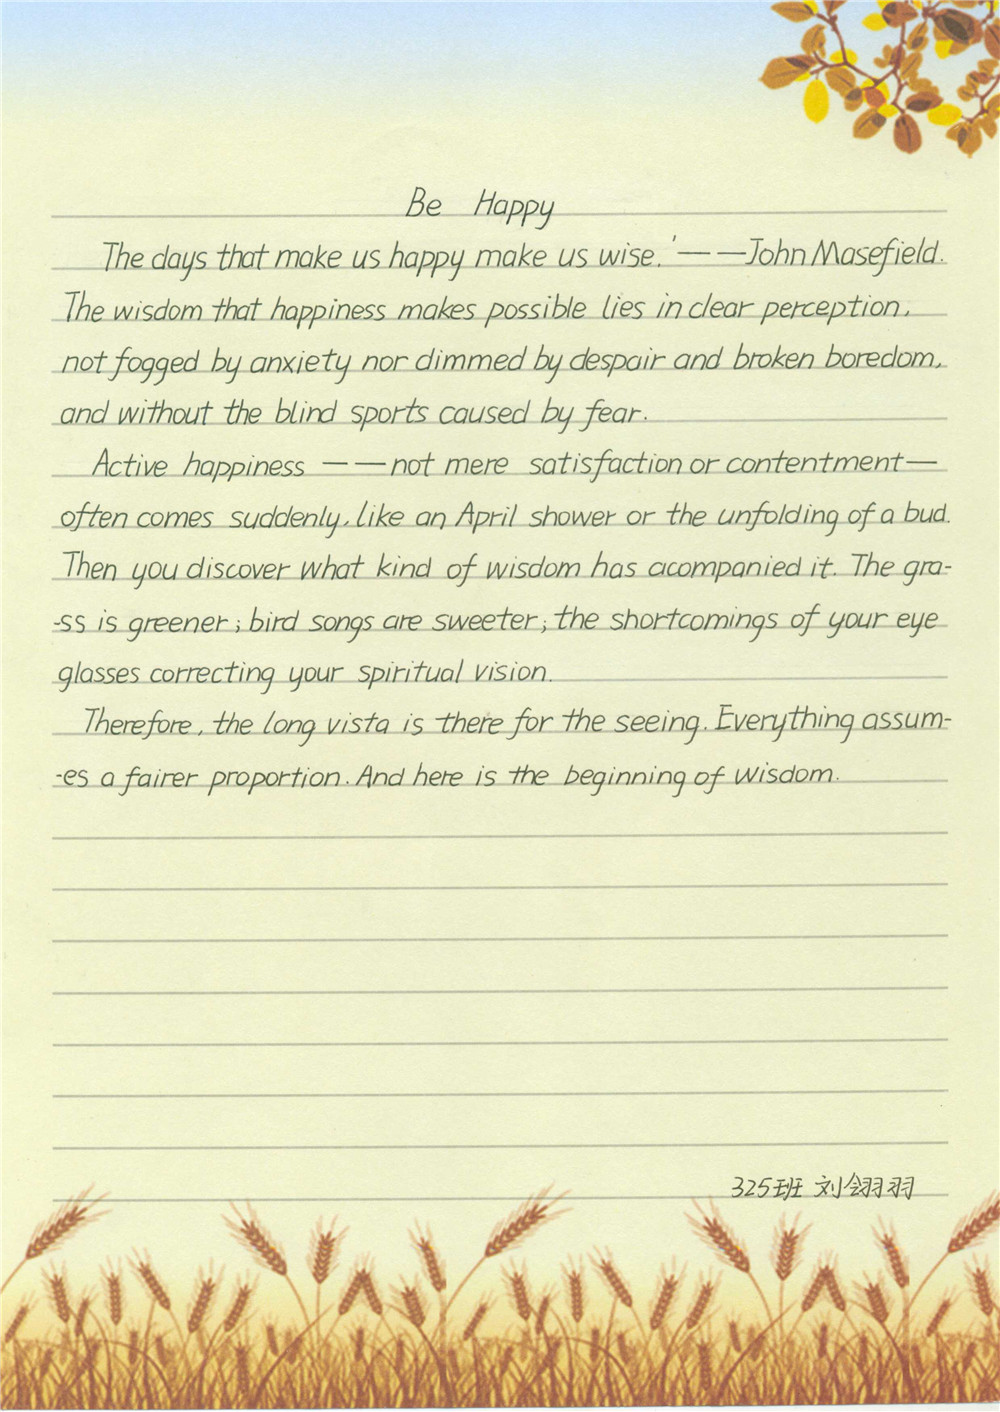 Be Happy
The days that make us happy make us wise.' —— —John Masefield.
The wisdom that happiness makes possible lies in clear perception,
not fogged by anxiety nor dimmed by despair and broken boredom,
and without the blind sports caused by fear.
Active happiness ——not mere satisfaction or contentment—
often comes suddenly, like an April shower or the unfolding of a bud.
Then you discover what kind of wisdom has acompanied it. The gra-
-ss is greener; bird songs are sweeter; the shortcomings of your eye
glasses correcting your spiritual vision.
Therefore, the long vista is there for the seeing. Everything assum-
-es a fairer proportion. And here is the beginning of wisdom.
325班 刘翎羽